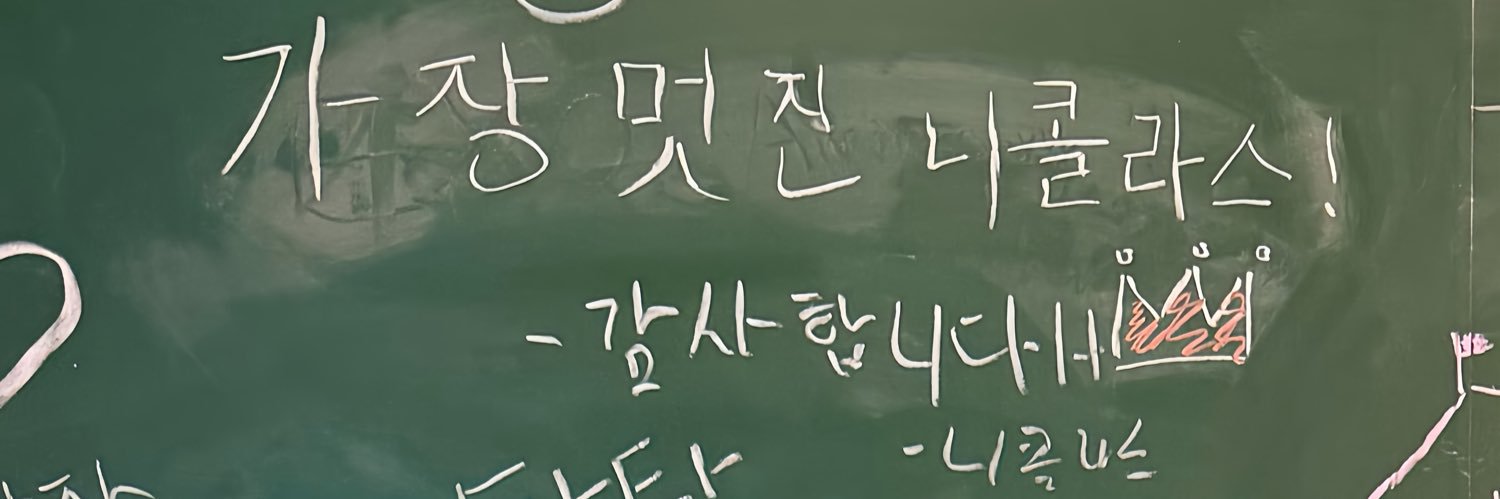 가장 멋진 니콜라스!
- 감사합니다
- 니콜라스